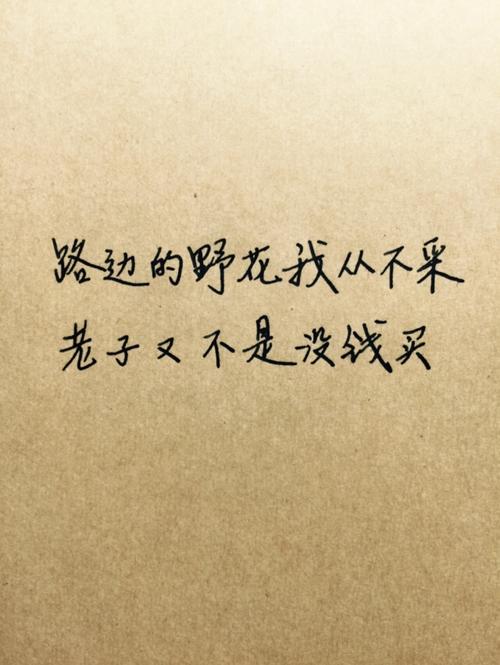 路边的野花我从不采
老子又不是没钱买